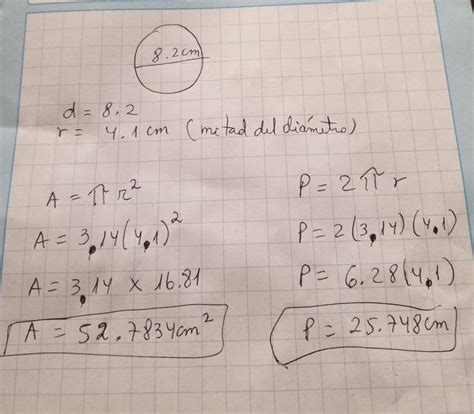 8.2cm
d = 8.2
r = 4.1 cm (mitad del diámetro)
A = π r²
A = 3,14(4,1)²
A = 3,14 x 16.81
A = 52.7834cm²
P = 2πr
P = 2(3,14)(4,1)
P = 6.28(4,1)
P = 25.748cm